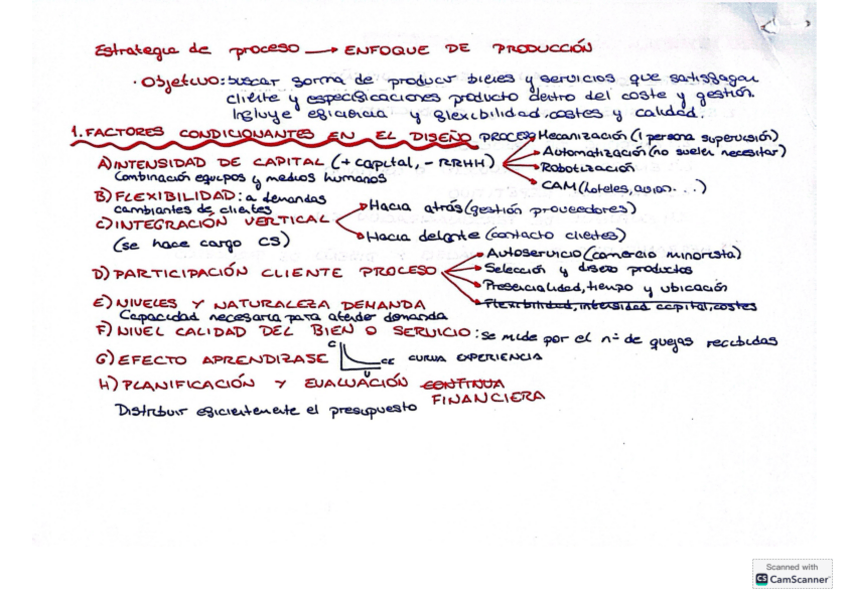 Estrategia de proceso → ENFOQUE DE PRODUCCIÓN
· Objetivo: buscar forma de producir bienes y servicios que satisfagan
cliente y especificaciones producto dentro del coste y gestión.
Influye eficiencia y flexibilidad, costes y calidad.
1. FACTORES CONDICIONANTES EN EL DISEÑO PROCESO
A) INTENSIDAD DE CAPITAL (+ capital, - RRHH)
Combinación equipos y medios humanos
Mecanización (1 persona supervisión)
Automatización (no suelen necesitar)
Robotización
CAM (hoteles, avion...)
B) FLEXIBILIDAD: a demandas
cambiantes de clientes
C) INTEGRACIÓN VERTICAL
(se hace cargo CS)
Hacia atrás (gestión proveedores)
Hacia delante (contacto clientes)
D) PARTICIPACIÓN CLIENTE PROCESO
Autoservicio (comercio minorista)
Selección y diseño productos
Presencialidad, tiempo y ubicación
Flexibilidad, intensidad capital, costes
E) NIVELES Y NATURALEZA DEMANDA
Capacidad necesaria para atender demanda
F) NIVEL CALIDAD DEL BIEN O SERVICIO: se mide por el nº de quejas recibidas
G) EFECTO APRENDIZAJE C CE U CURVA EXPERIENCIA
H) PLANIFICACIÓN Y EVALUACIÓN CONTINUA
FINANCIERA
Distribuir eficientemente el presupuesto
Scanned with
CS CamScanner